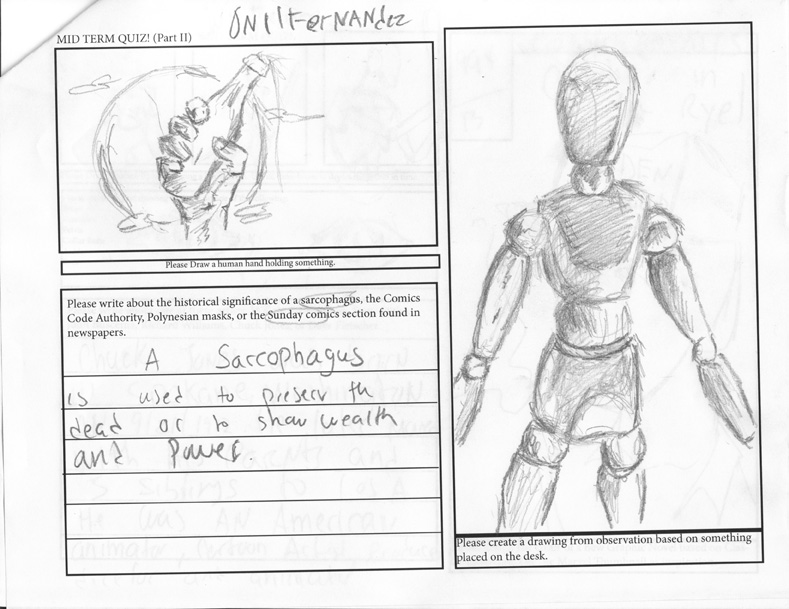 MID TERM QUIZ! (Part II)
ONIl FerNANdez
Please Draw a human hand holding something.
Please write about the historical significance of a sarcophagus, the Comics
Code Authority, Polynesian masks, or the Sunday comics section found in
newspapers.
A Sarcophagus
is used to preserv th
dead or to show wealth
and Power.
Please create a drawing from observation based on something
placed on the desk.